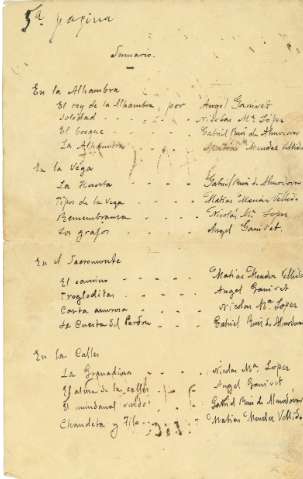 5ª pagina
Sumario.
En la Alhambra
El rey de la Alhambra, por Angel Ganivet
Soledad - - - - Nicolas Mª López
El bosque - - - - Gabriel Ruiz de Almodovar
La Alhambra - - - - Matías Mendez Vellido
En la Vega
La Huerta - - - - Gabriel Ruiz de Almodovar
Tipos de la Vega - - - - Matías Mendez Vellido
Remembranza - - - - Nicolás Mª Lopez
Los grafos - - - - Angel Ganivet.
En el Sacromonte
El camino - - - - Matías Mendez Vellido
Trogloditas - - - - Angel Ganivet
Carta amorosa - - - - Nicolas Mª Lopez
La Cuesta del Perdón - - - - Gabriel Ruiz de Almodovar
En la Calle
La Granadina - - - - Nicolas Mª Lopez
El alma de la calle - - - - Angel Ganivet
El mundanal ruido - - - - Gabriel Ruiz de Almodovar
y - - - - Matías Mendez Vellido